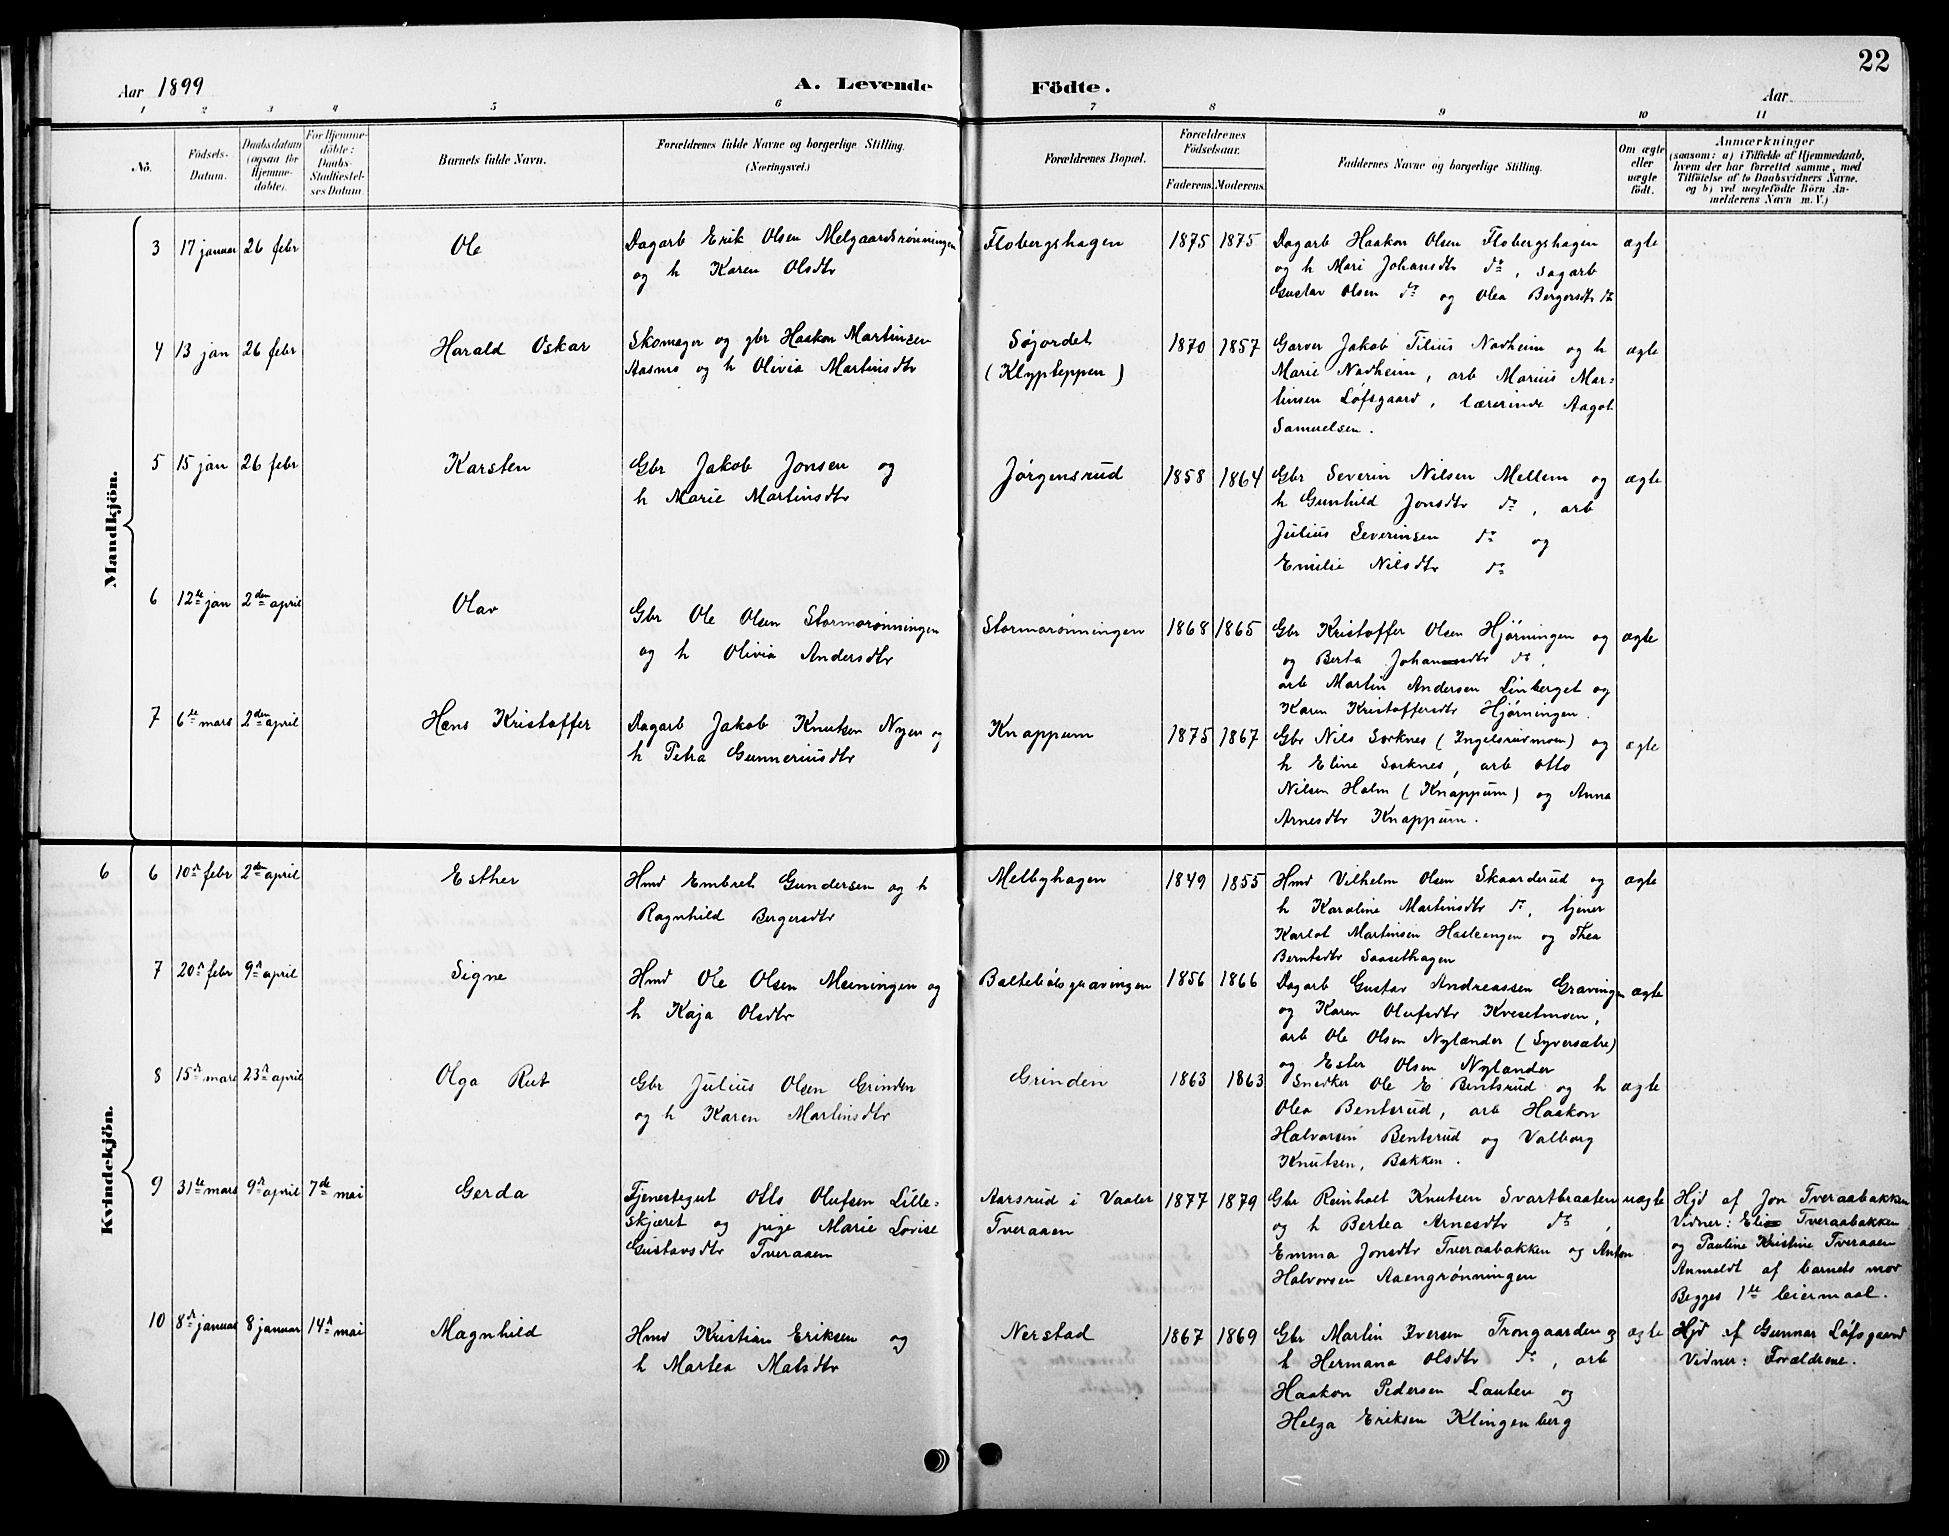 22
Aar 1899
A. Levende Födte.
Aar
1 2 3 4 5 6 7 8 9 10 11
No.
Födsels-Datum.
Daabsdatum (ogsaa for Hjemme-döbte).
For Hjemme-döbte: Daabs-Stadfæstel-ses Datum
Barnets fulde Navn.
Forældrenes fulde Navne og borgerlige Stilling. (Næringsvei.)
Forældrenes Bopæl.
Forældrenes Födselsaar.
Faderens. Moderens.
Faddernes Navne og borgerlige Stilling.
Om ægte eller uægte födt.
Anmærkninger
(saasom: a) i Tilfælde af Hjemmedaab,
hvem der har forrettet samme, med
Tilföielse af to Daabsvidners Navne,
og b) ved uægtefödte Börn An-
melderens Navn m. V.)
Mandkjön.
3 17 januar 26 febr Ole
Dagarb Erik Olsen Melgaardsrønningen
og h Karen Olsdtr
Flobergshagen 1875 1875
Dagarb Haakon Olsen Flobergshagen
og h Mari Johansdtr do, sagarb
Gustav Olsen do og Olea Bergersdtr do
ægte
4 13 jan 26 febr Harald Oskar
Skomager og gbr Haakon Martinsen
Aasmo og h Olivia Martinsdtr
Søjordet
(Klypteppen)
1870 1857
Garver Jakob Tilius Nadheim og h
Marie Nadheim, arb Marius Mar-
tinsen Løfsgaard, lærerinde Aagot
Samuelsen.
ægte
5 15 jan 26 febr Karsten
Gbr Jakob Jonsen og
h Marie Martinsdtr
Jørgensrud 1858 1864
Gbr Severin Nilsen Mellem og
h Gunhild Jonsdtr do, arb
Julius Severinsen do og
Emilie Nilsdtr do
ægte
6 12te jan 2den april Olav
Gbr Ole Olsen Stormorønningen
og h Olivia Andersdtr
Stormorønningen 1868 1865
Gbr Kristoffer Olsen Hjørningen og
og Berta Johansdtr do,
arb Martin Andersen Linberget og
Karen Kristoffersdtr Hjørningen.
ægte
7 6te mars 2den april Hans Kristoffer
Dagarb Jakob Knutsen Nyen og
h Petra Gunneriusdtr
Knappum 1875 1867
Gbr Nils Sorknes (Ingelsrudmoen) og
h Eline Sorknes, arb Otto
Nilsen Holm (Knappum) og Anna
Arnesdtr Knappum.
ægte
Kvindekjön.
6 6 10de febr 2den april Esther
Hmd Embret Gundersen og h
Ragnhild Bergersdtr
Melbyhagen 1849 1855
Hmd Vilhelm Olsen Skaarderud og
h Karoline Martinsdtr do, tjener
Karlot Martinsen Hasleengen og Thea
Berntsdtr Saasethagen
ægte
7 20de febr 9de april Signe
Hmd Ole Olsen Meiningen og
h Kaja Olsdtr
Baltebølsgravingen 1856 1866
Dagarb Gustav Andreassen Gravingen
og Karen Olufsdtr Kvesetmoen,
arb Ole Olsen Nylænder (Syversætre)
og Ester Olsen Nylander
ægte
8 15de mars 23de april Olga Rut
Gbr Julius Olsen Grinden
og h Karen Martinsdtr
Grinden 1863 1863
Snedker Ole E Bentsrud og h
Olea Bentsrud, arb Haakon
Halvorsen Bentsrud og Valborg
Knutsen, Bakken.
ægte
9 31te mars 9de april 7de mai Gerda
Tjenestegut Otto Olufsen Lille-
skjæret og pige Marie Lovise
Gustavsdtr Tveraaen
Aarsrud i Vaaler
Tveraaen
1877 1879
Gbr Reinholt Knutsen Svartbraaten
og h Bertea Arnesdtr do,
Emma Jonsdtr Tveraabakken og Anton
Halvorsen Aaengrønningen
uægte
Hjd af Jon Tveraabakken
Vidner: Elise Tveraabakken
og Pauline Kristine Tveraaen
Anmeldt af barnets mor
Begges 1te leiermaal.
10 8de januar 8 januar 14de mai Magnhild
Hmd Kristian Eriksen og
h Martea Matsdtr
Nerstad 1867 1869
Gbr Martin Iversen Trongaarden og
h Hermana Olsdtr do, arb
Haakon Pedersen Lauten og
Helga Eriksen Klingenberg
ægte
Hjd af Gunnar Løfsgaard
Vidner: Forældrene.